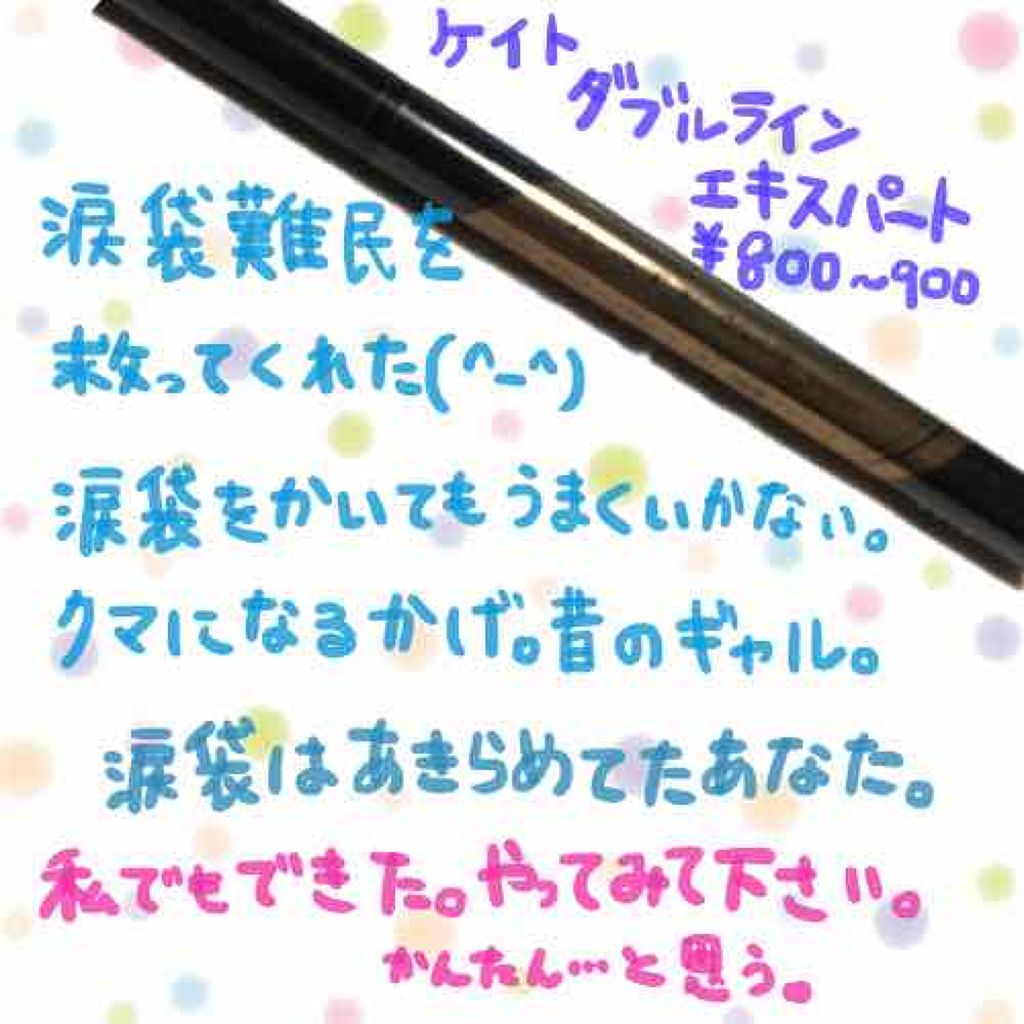 ケイト
ダブルライン
エキスパート
¥800〜900
涙袋難民を
救ってくれた(^-^)
涙袋をかいてもうまくいかない。
クマになるかげ。昔のギャル。
涙袋はあきらめてたあなた。
私でもできた。やってみて下さい。
かんたん…と思う。